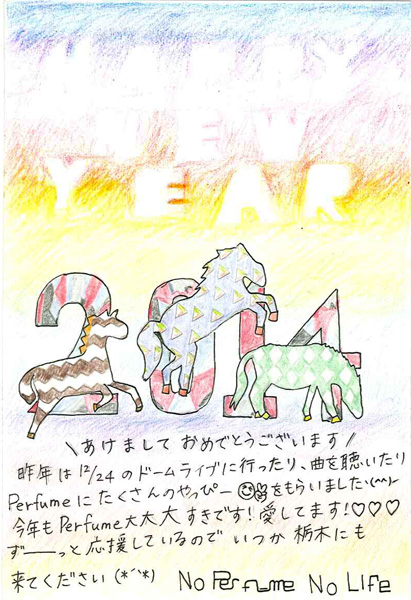 HAPPY
NEW
YEAR
2014
\あけまして おめでとうございます/
昨年は12/24のドームライブに行ったり、曲を聴いたり
Perfumeにたくさんのやっぴー☺✌をもらいました\(^^)/
今年もPerfume大大大すきです!愛してます!♡♡♡
ずーーっと応援しているので いつか 栃木にも
来てください(*´`*) No Perfume No Life